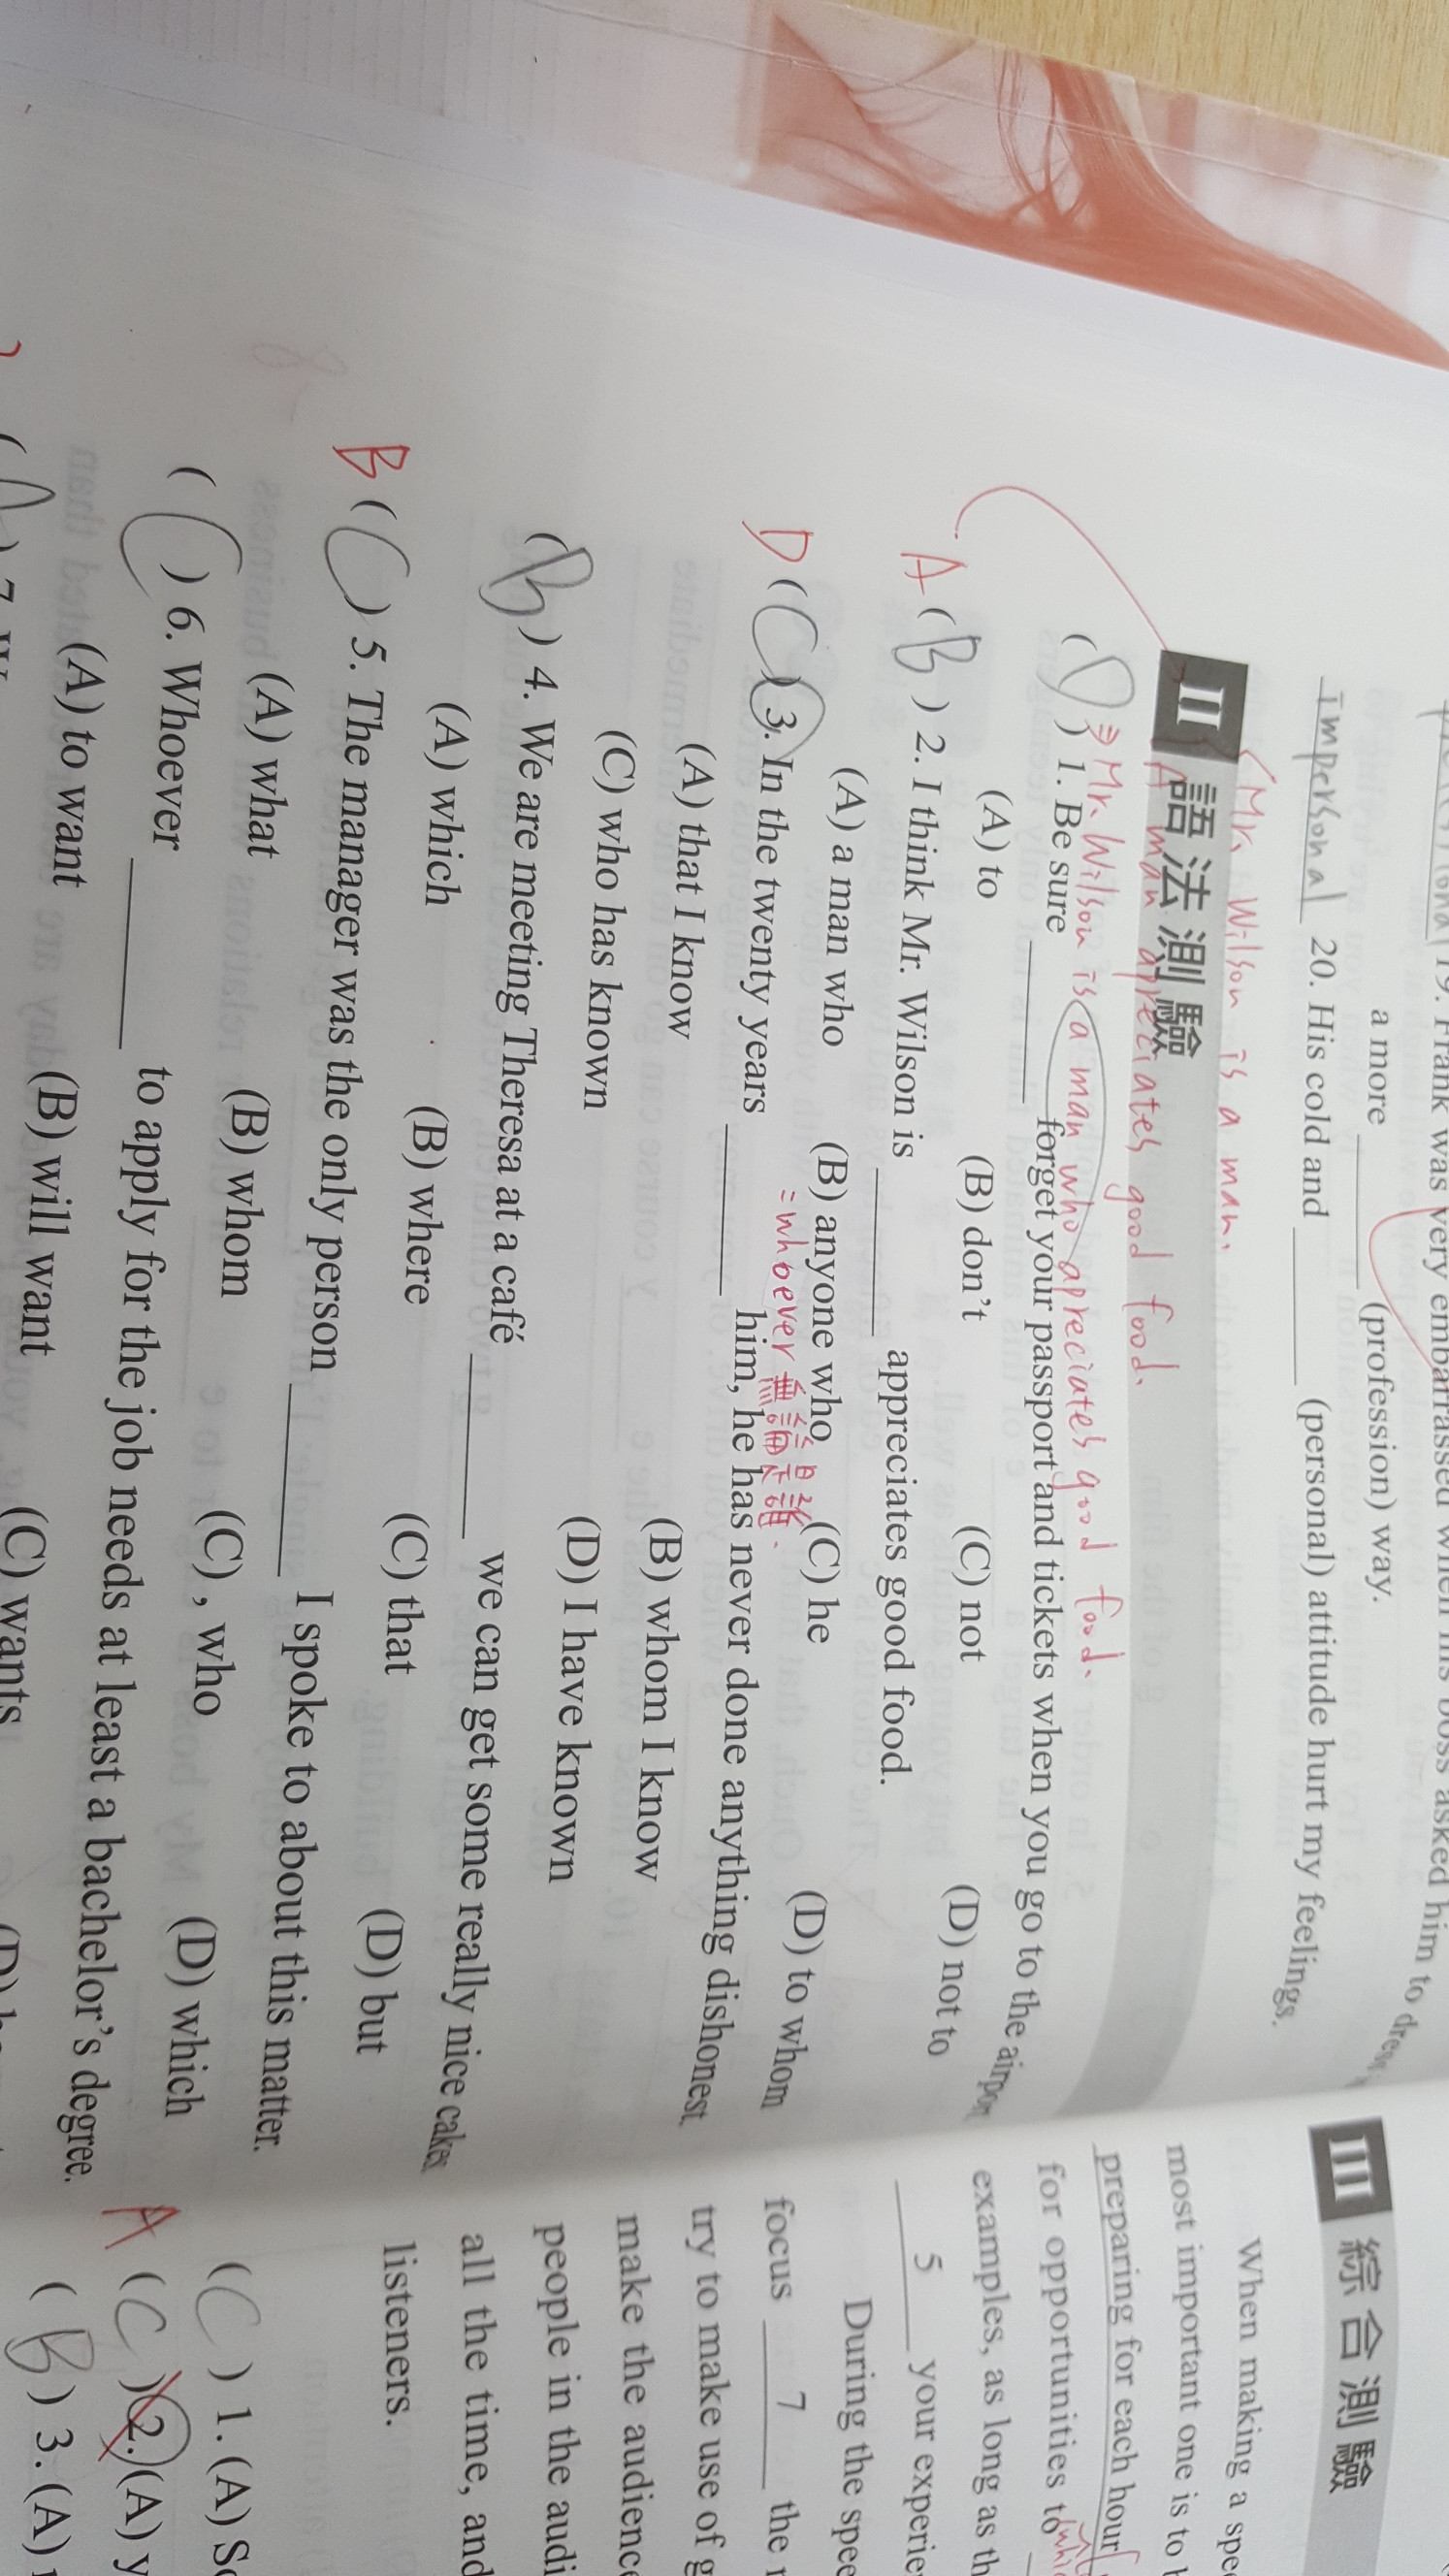 19. Frank was very embarrassed when his boss asked him to
a more ______ (profession) way.
impersonal 20. His cold and ______ (personal) attitude hurt my feelings.
Mr. Wilson is a man.
II 語法測驗
A man apreciates good food.
⇒ Mr. Wilson is a man who apreciates good food.
(D) 1. Be sure ______ forget your passport and tickets when you go to the airport
(A) to (B) don't (C) not (D) not to
A (B) 2. I think Mr. Wilson is ______ appreciates good food.
(A) a man who (B) anyone who (C) he (D) to whom
= whoever 無論是誰
D (C) 3. In the twenty years ______ him, he has never done anything dishonest.
(A) that I know (B) whom I know
(C) who has known (D) I have known
(B) 4. We are meeting Theresa at a café ______ we can get some really nice cakes.
(A) which (B) where (C) that (D) but
B (C) 5. The manager was the only person ______ I spoke to about this matter.
(A) what (B) whom (C) , who (D) which
(C) 6. Whoever ______ to apply for the job needs at least a bachelor's degree.
(A) to want (B) will want (C) wants
7.
III 綜合測驗
When making a
most important one is to
preparing for each hour
for opportunities to
examples, as long as
5 your
During the
focus 7 the
try to make use of
make the
people in the
all the time, and
listeners.
(C) 1. (A)
A (C) 2. (A)
(B) 3. (A)